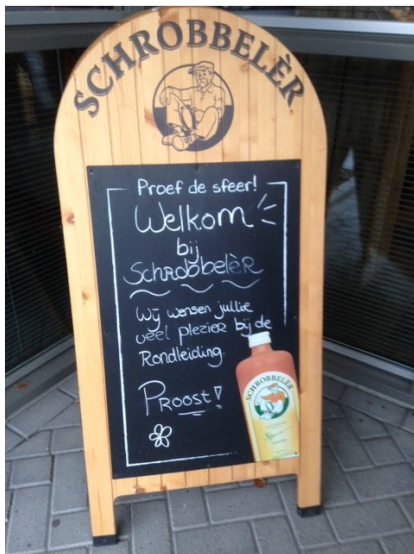 SCHROBBELÈR
Proef de sfeer!
Welkom
bij
Schrobbelèr
Wij wensen jullie
veel plezier bij de
Rondleiding.
Proost!
SCHROBBELÈR